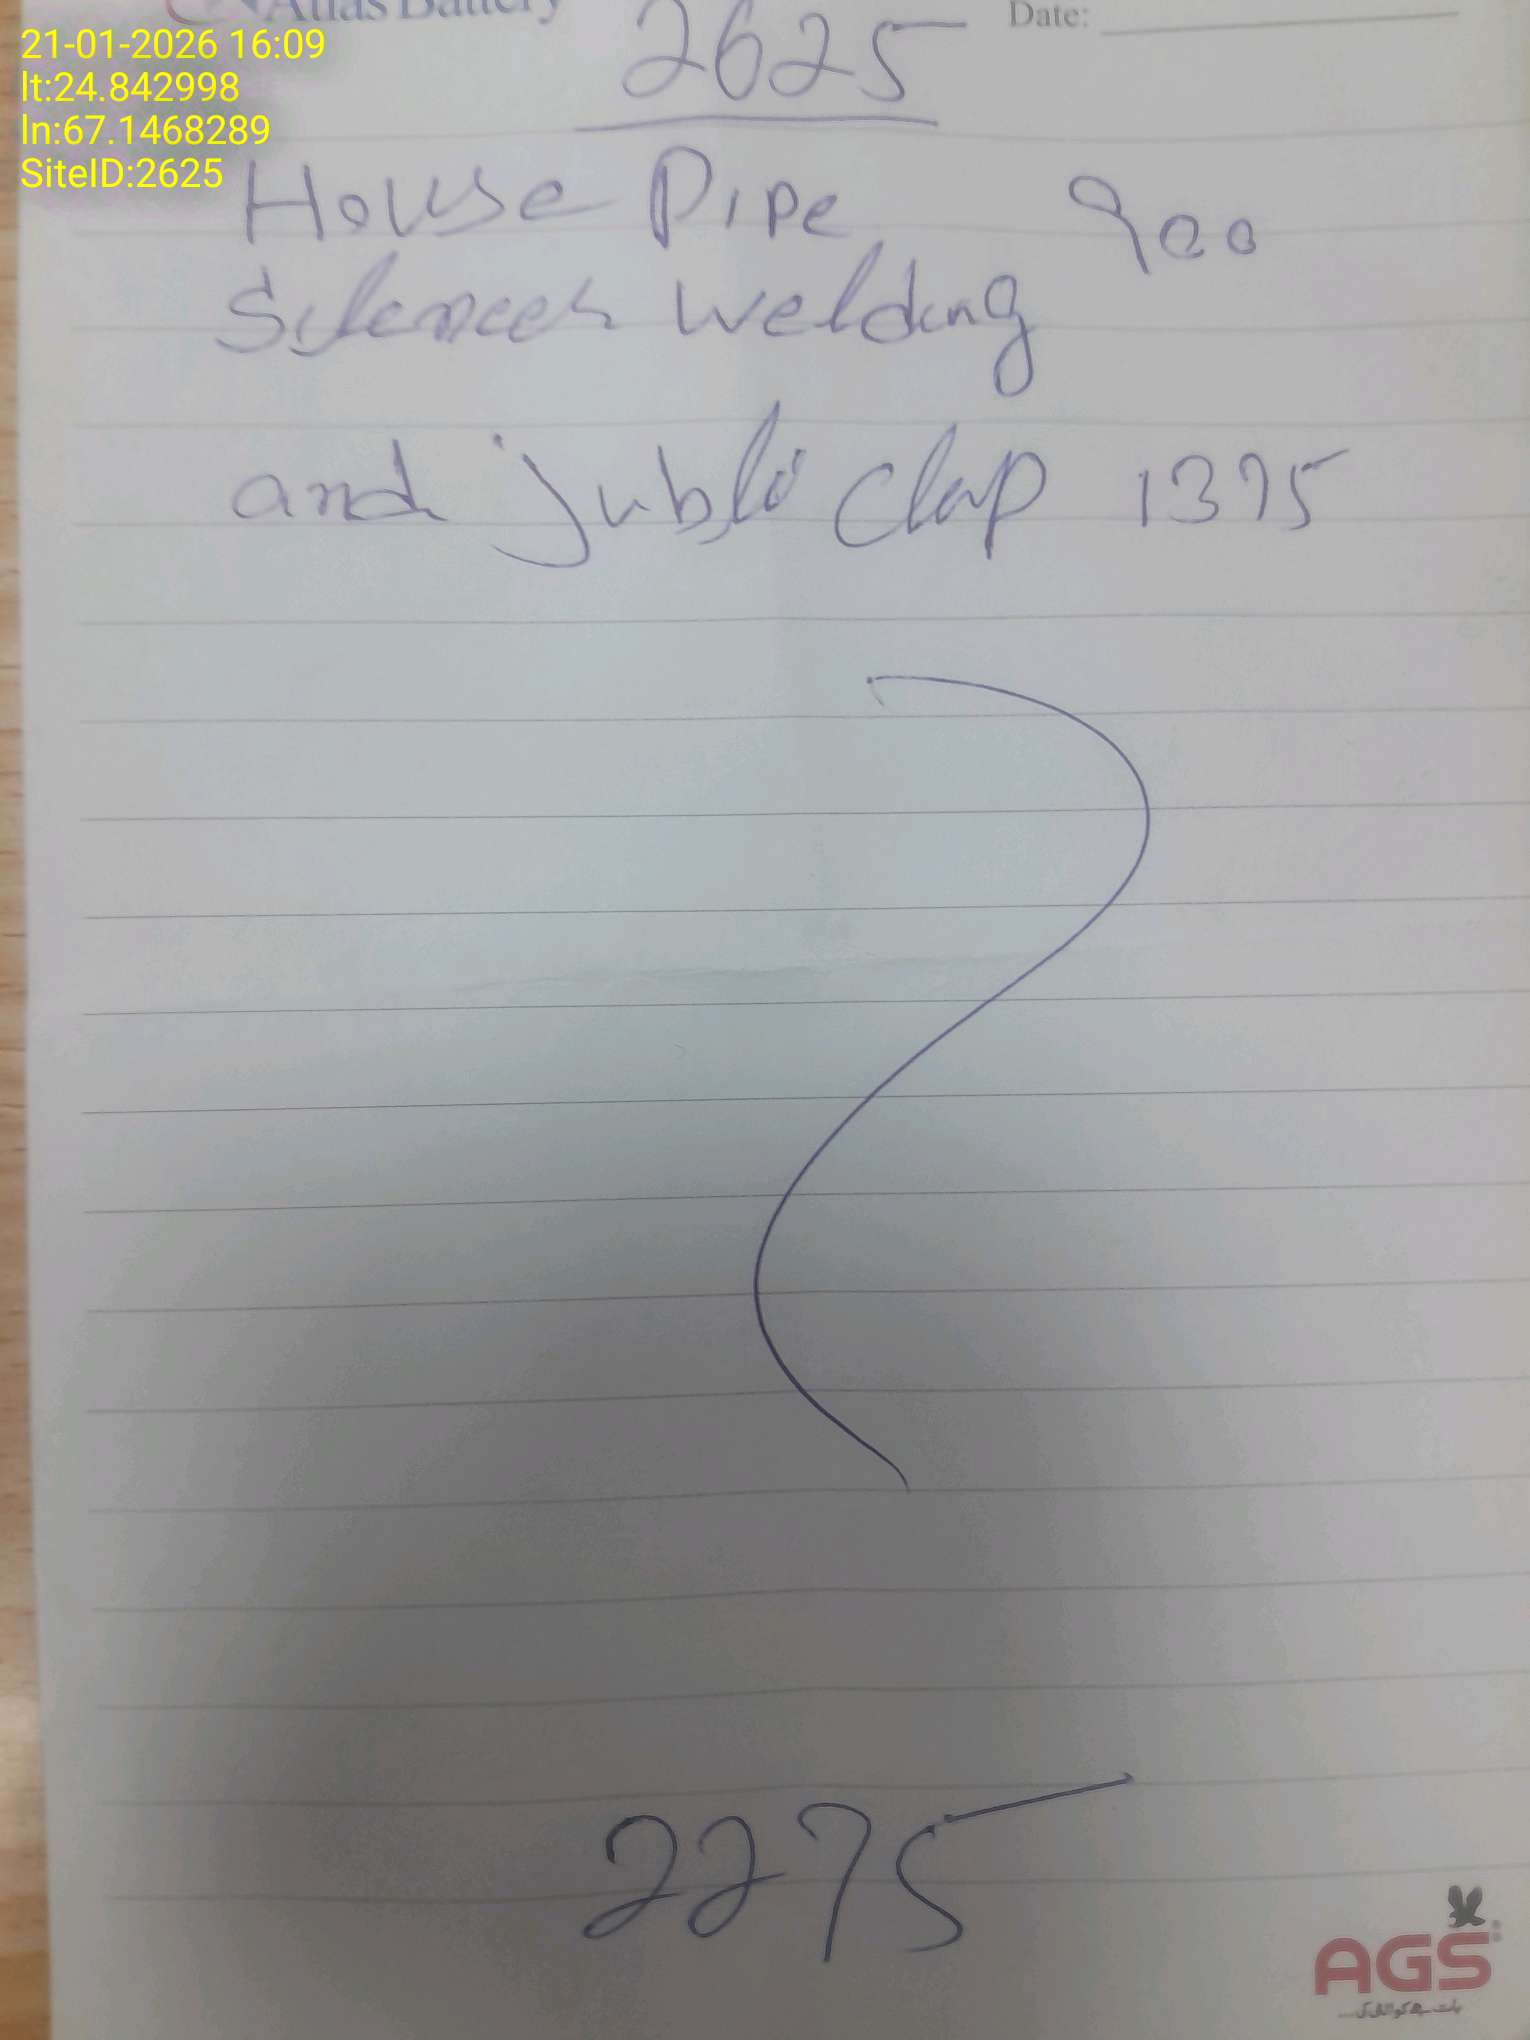 Atlas Battery
Date:
21-01-2026 16:09
lt:24.842998
ln:67.1468289
SiteID:2625
2625
House Pipe 900
Silencer welding
and jubli clap 1375
2275
AGS